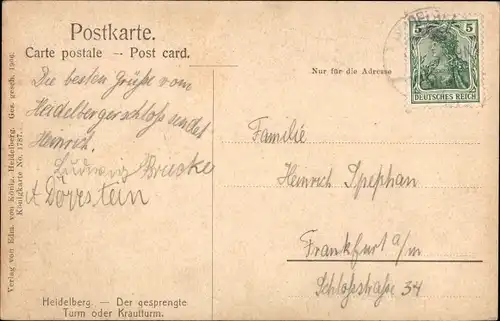 Postkarte.
Carte postale — Post card.
Nur für die Adresse
5 5
DEUTSCHES REICH
Die besten Grüße vom
Heidelbergerschloß sendet
Heinrich,
Ludwig
A Dörrstein
Familie
Heinrich Spephan
Frankfurt a/m
Schloßstraße 34
Heidelberg. — Der gesprengte
Turm oder Krautturm.
Verlag von Edm. von König, Heidelberg. Ges. gesch. 1906.
Königkarte No. 1787.